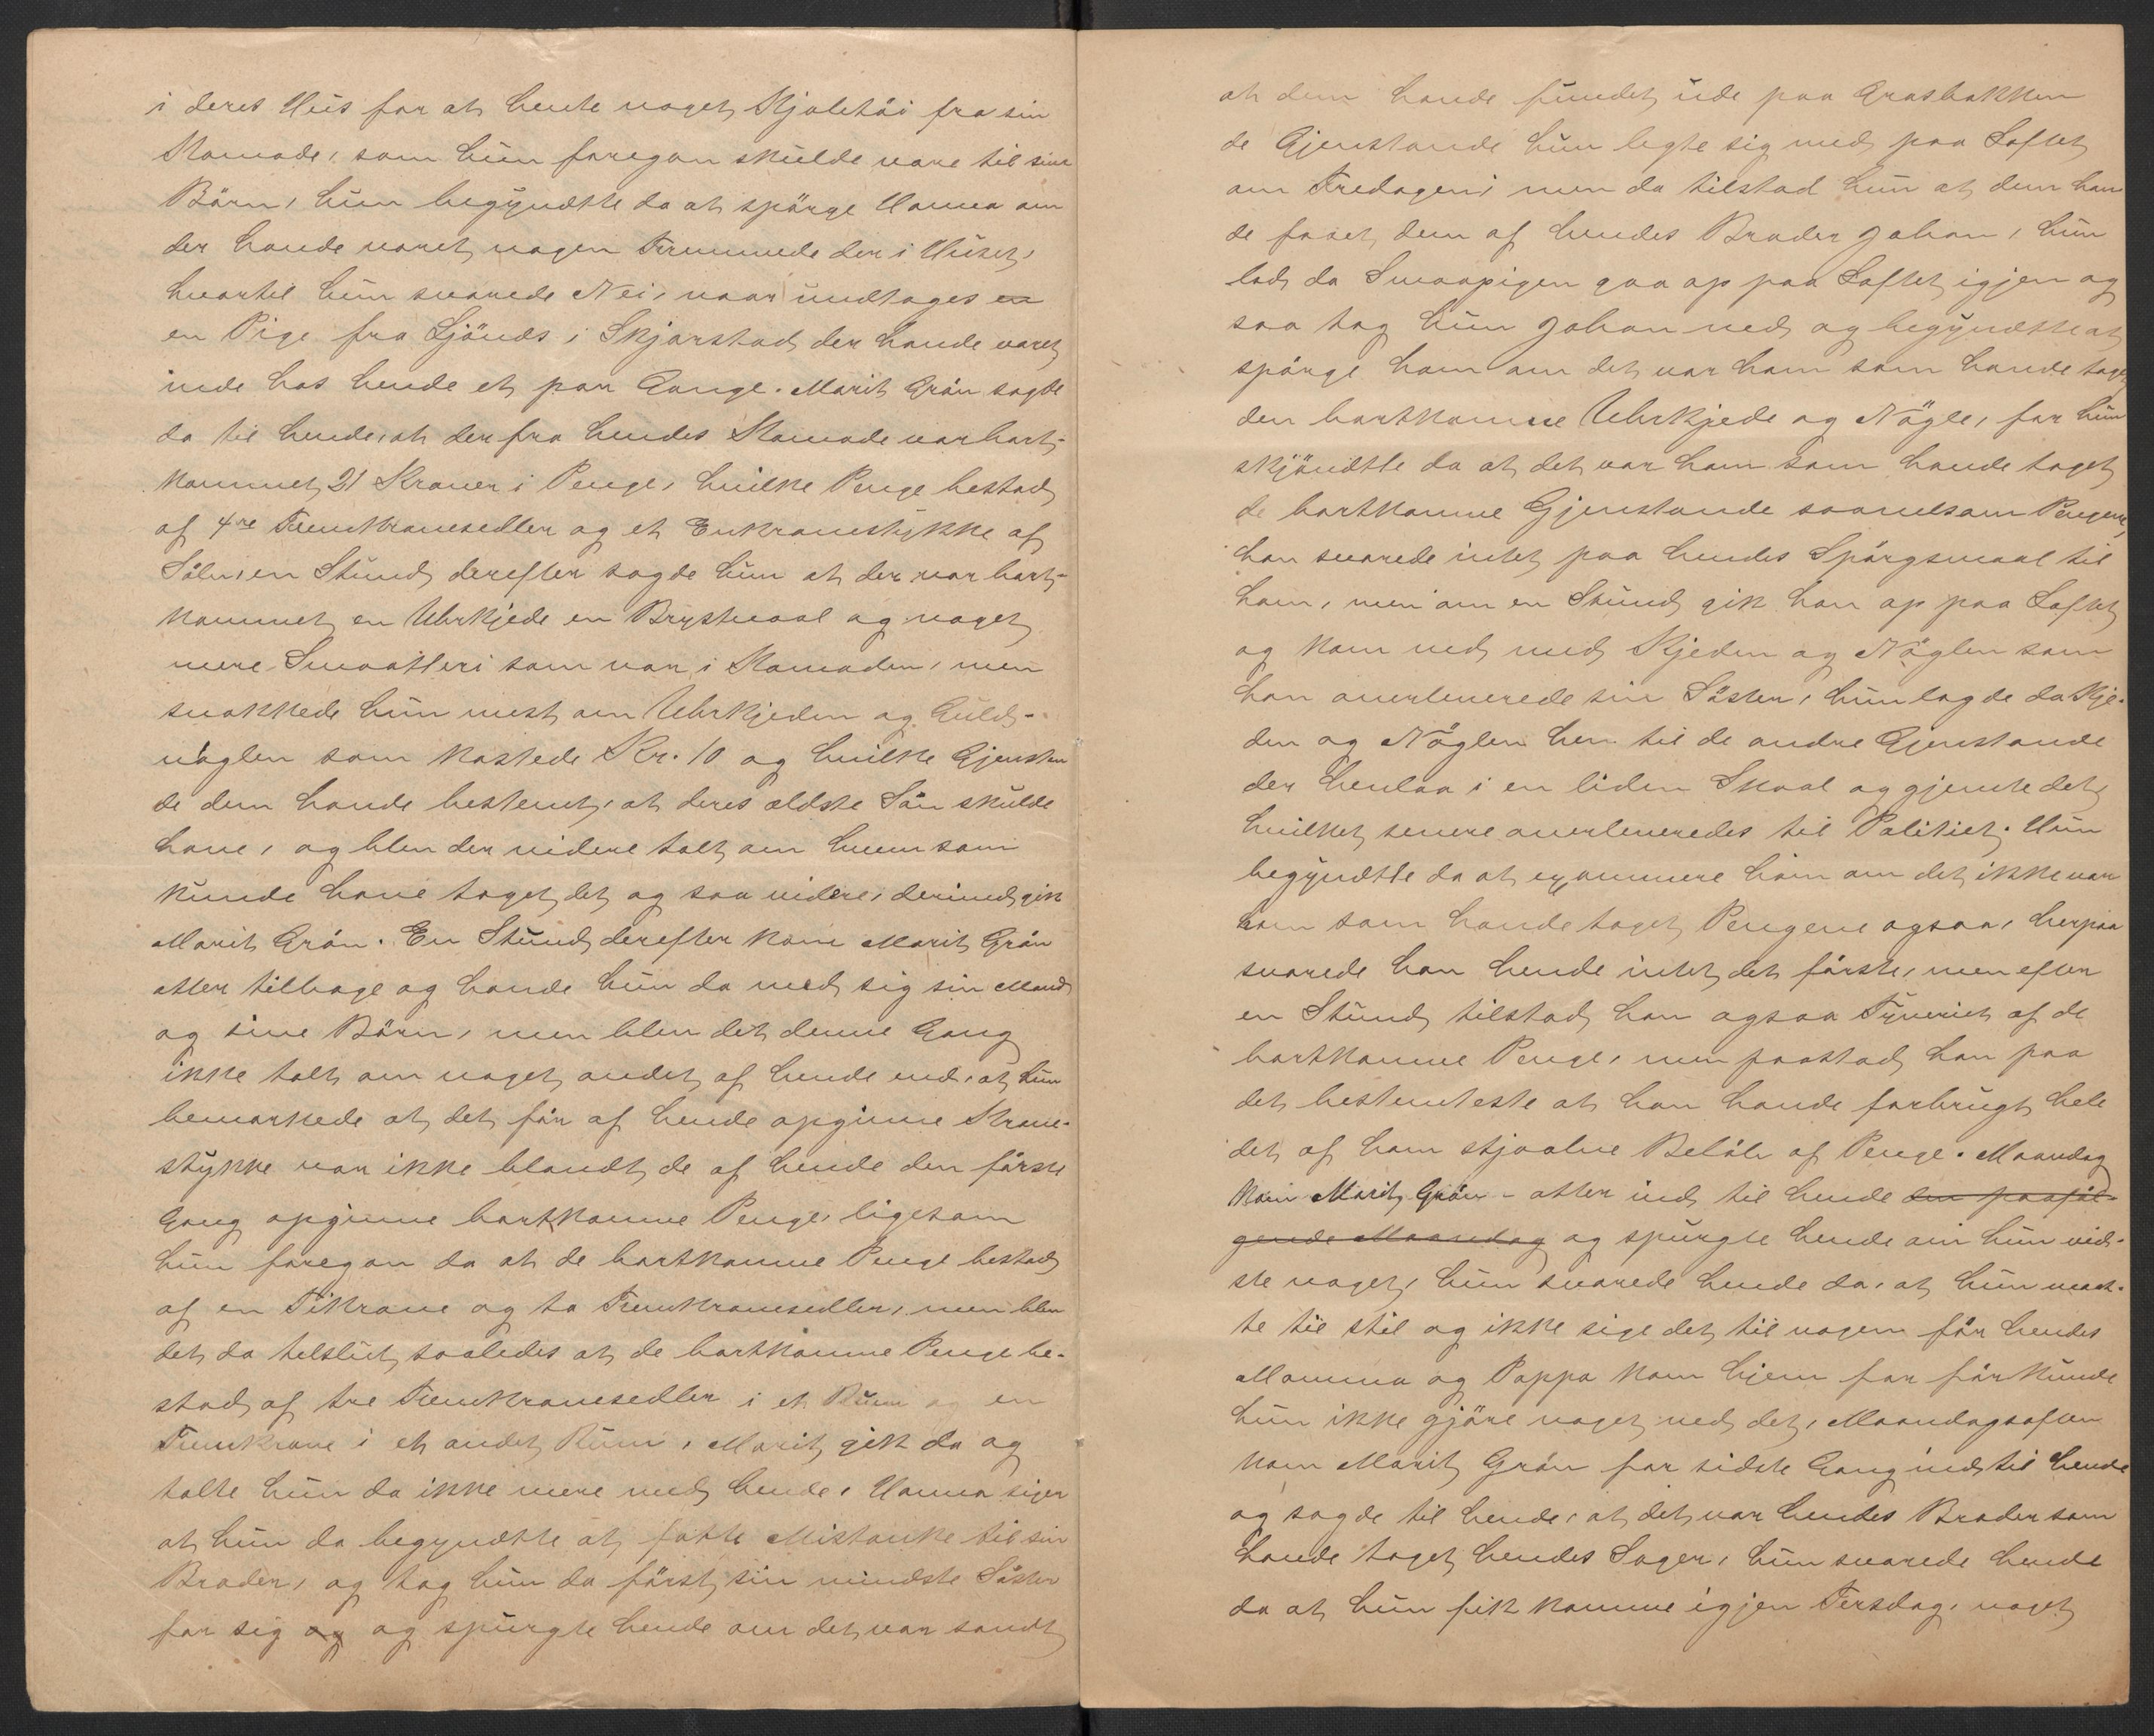 i deres Hus for at hente noget Kjoletöi fra sin
Komode, som hun foregav skulde være til sine
Börn, hun begyndtte da at spörge Hanna om
der havde været nogen Fremmede der i Huset,
hvortil hun svarede Nei, naar undtages en
en Pige fra Ljönds i Skjærstad der havde været
inde hos hende et par Gange. Marit Grön sagde
da til hende, at der fra hendes Komode var bort-
kommet 21 Kroner i Penge, hvilke Penge bestod
af 4re Femkronesedler og et Enkronestykke af
Sölv, en Stund derefter sagde hun at der var bort-
kommet en Uhrkjede en Brystnaal og noget
mere Smaatteri som var i Komoden, men
snakkede hun mest om Uhrkjeden og Guld-
nöglen som kostede Kr. 10 og hvilke Gjenstan
de dem havde bestemt, at deres ældste Sön skulde
have, og blev der videre talt om hvem som
kunde have taget det og saa videre, derimed gik
Marit Grön. En Stund derefter kom Marit Grön
atter tilbage og havde hun da med sig sin Mand
og sine Börn, men blev det denne Gang
ikke talt om noget andet af hende end, at hun
bemærkede at det för af hende opgivne Krone-
stykke var ikke blandt de af hende den förste
Gang opgivne bortkomne Penge, ligesom
hun foregav da at de bortkomne Penge bestod
af en Tikrone og to Femkronesedler, men blev
det da tilslut saaledes at de bortkomne Penge be-
stod af tre Femkronesedler i et Rum og en
Femkrone i et andet Rum, Marit gik da og
talte hun da ikke mere med hende. Hanna siger
at hun da begyndtte at fatte Mistanke til sin
Broder, og tog hun da först sin mindste Söster
for sig og og spurgte hende om det var sandt
at dem havde fundet ude paa Græsbakken
de Gjenstande hun legte sig med paa Loftet
om Fredagen, men da tilstod hun at dem hav
de faaet dem af hendes Broder Johan, hun
lod da Smaapigen gaa op paa Loftet igjen og
saa tog hun Johan ned og begyndtte at
spörge ham om det var ham som havde taget
den bortkomne Uhrkjede og Nögle, for hun
skjöndtte da at det var ham som havde taget
de bortkomne Gjenstande saavelsom Pengene,
han svarede intet paa hendes Spörgsmaal til
ham, men om en Stund gik han op paa Loftet
og kom ned med Kjeden og Nöglen som
han overleverede sin Söster, hun lagde da Kje-
den og Nöglen hen til de andre Gjenstande
der henlaa i en liden Skaal og gjemte det,
hvilket senere overleveredes til Politiet. Hun
begyndtte da at examinere ham om det ikke var
ham som havde taget Pengene ogsaa, herpaa
svarede han hende intet det förste, men efter
en Stund tilstod han ogsaa Tyveriet af de
bortkomne Penge, men paastod han paa
det bestemteste at han havde forbrugt hele
det af ham stjaalne Belöb af Penge. Maandag
kom Marit Grön - atter ind til hende den paaföl-
gende Maandag og spurgte hende om hun vid-
ste noget, hun svarede hende da, at hun maat-
te tie stil og ikke sige det til nogen för hendes
Mamma og Pappa kom hjem for för kunde
hun ikke gjöre noget ved det, Maandagsaften
kom Marit Grön for sidste Gang ind til hende
og sagde til hende, at det var hendes Broder som
havde taget hendes Sager, hun svarede hende
da at hun fik komme igjen Tirsdag, noget